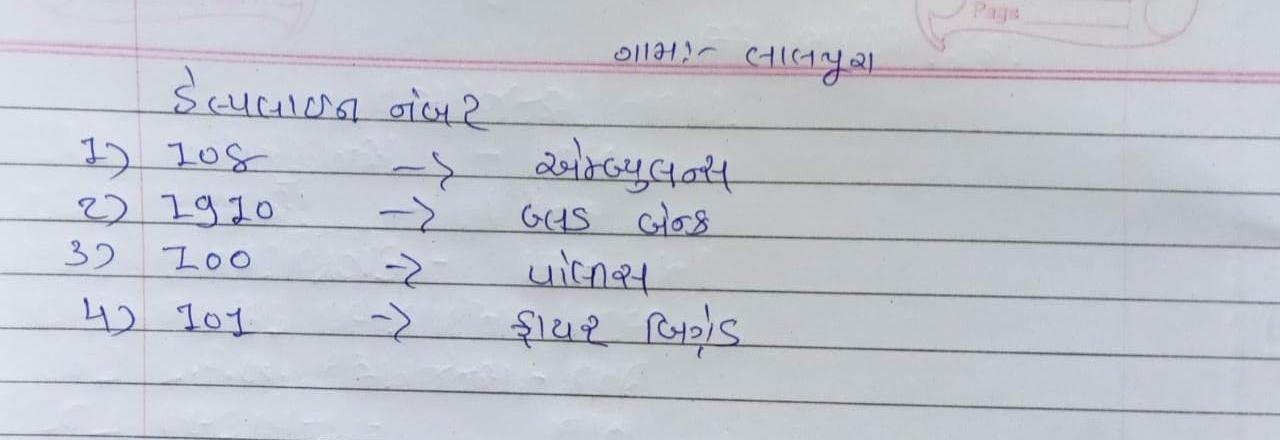 Page
ગામઃ- લાલપુરા
હેલ્પલાઇન નંબર
1) 108 -> એમ્બ્યુલન્સ
2) 1910 -> બ્લડ બેન્ક
3) 100 -> પોલીસ
4) 101 -> ફાયર બ્રિગેડ